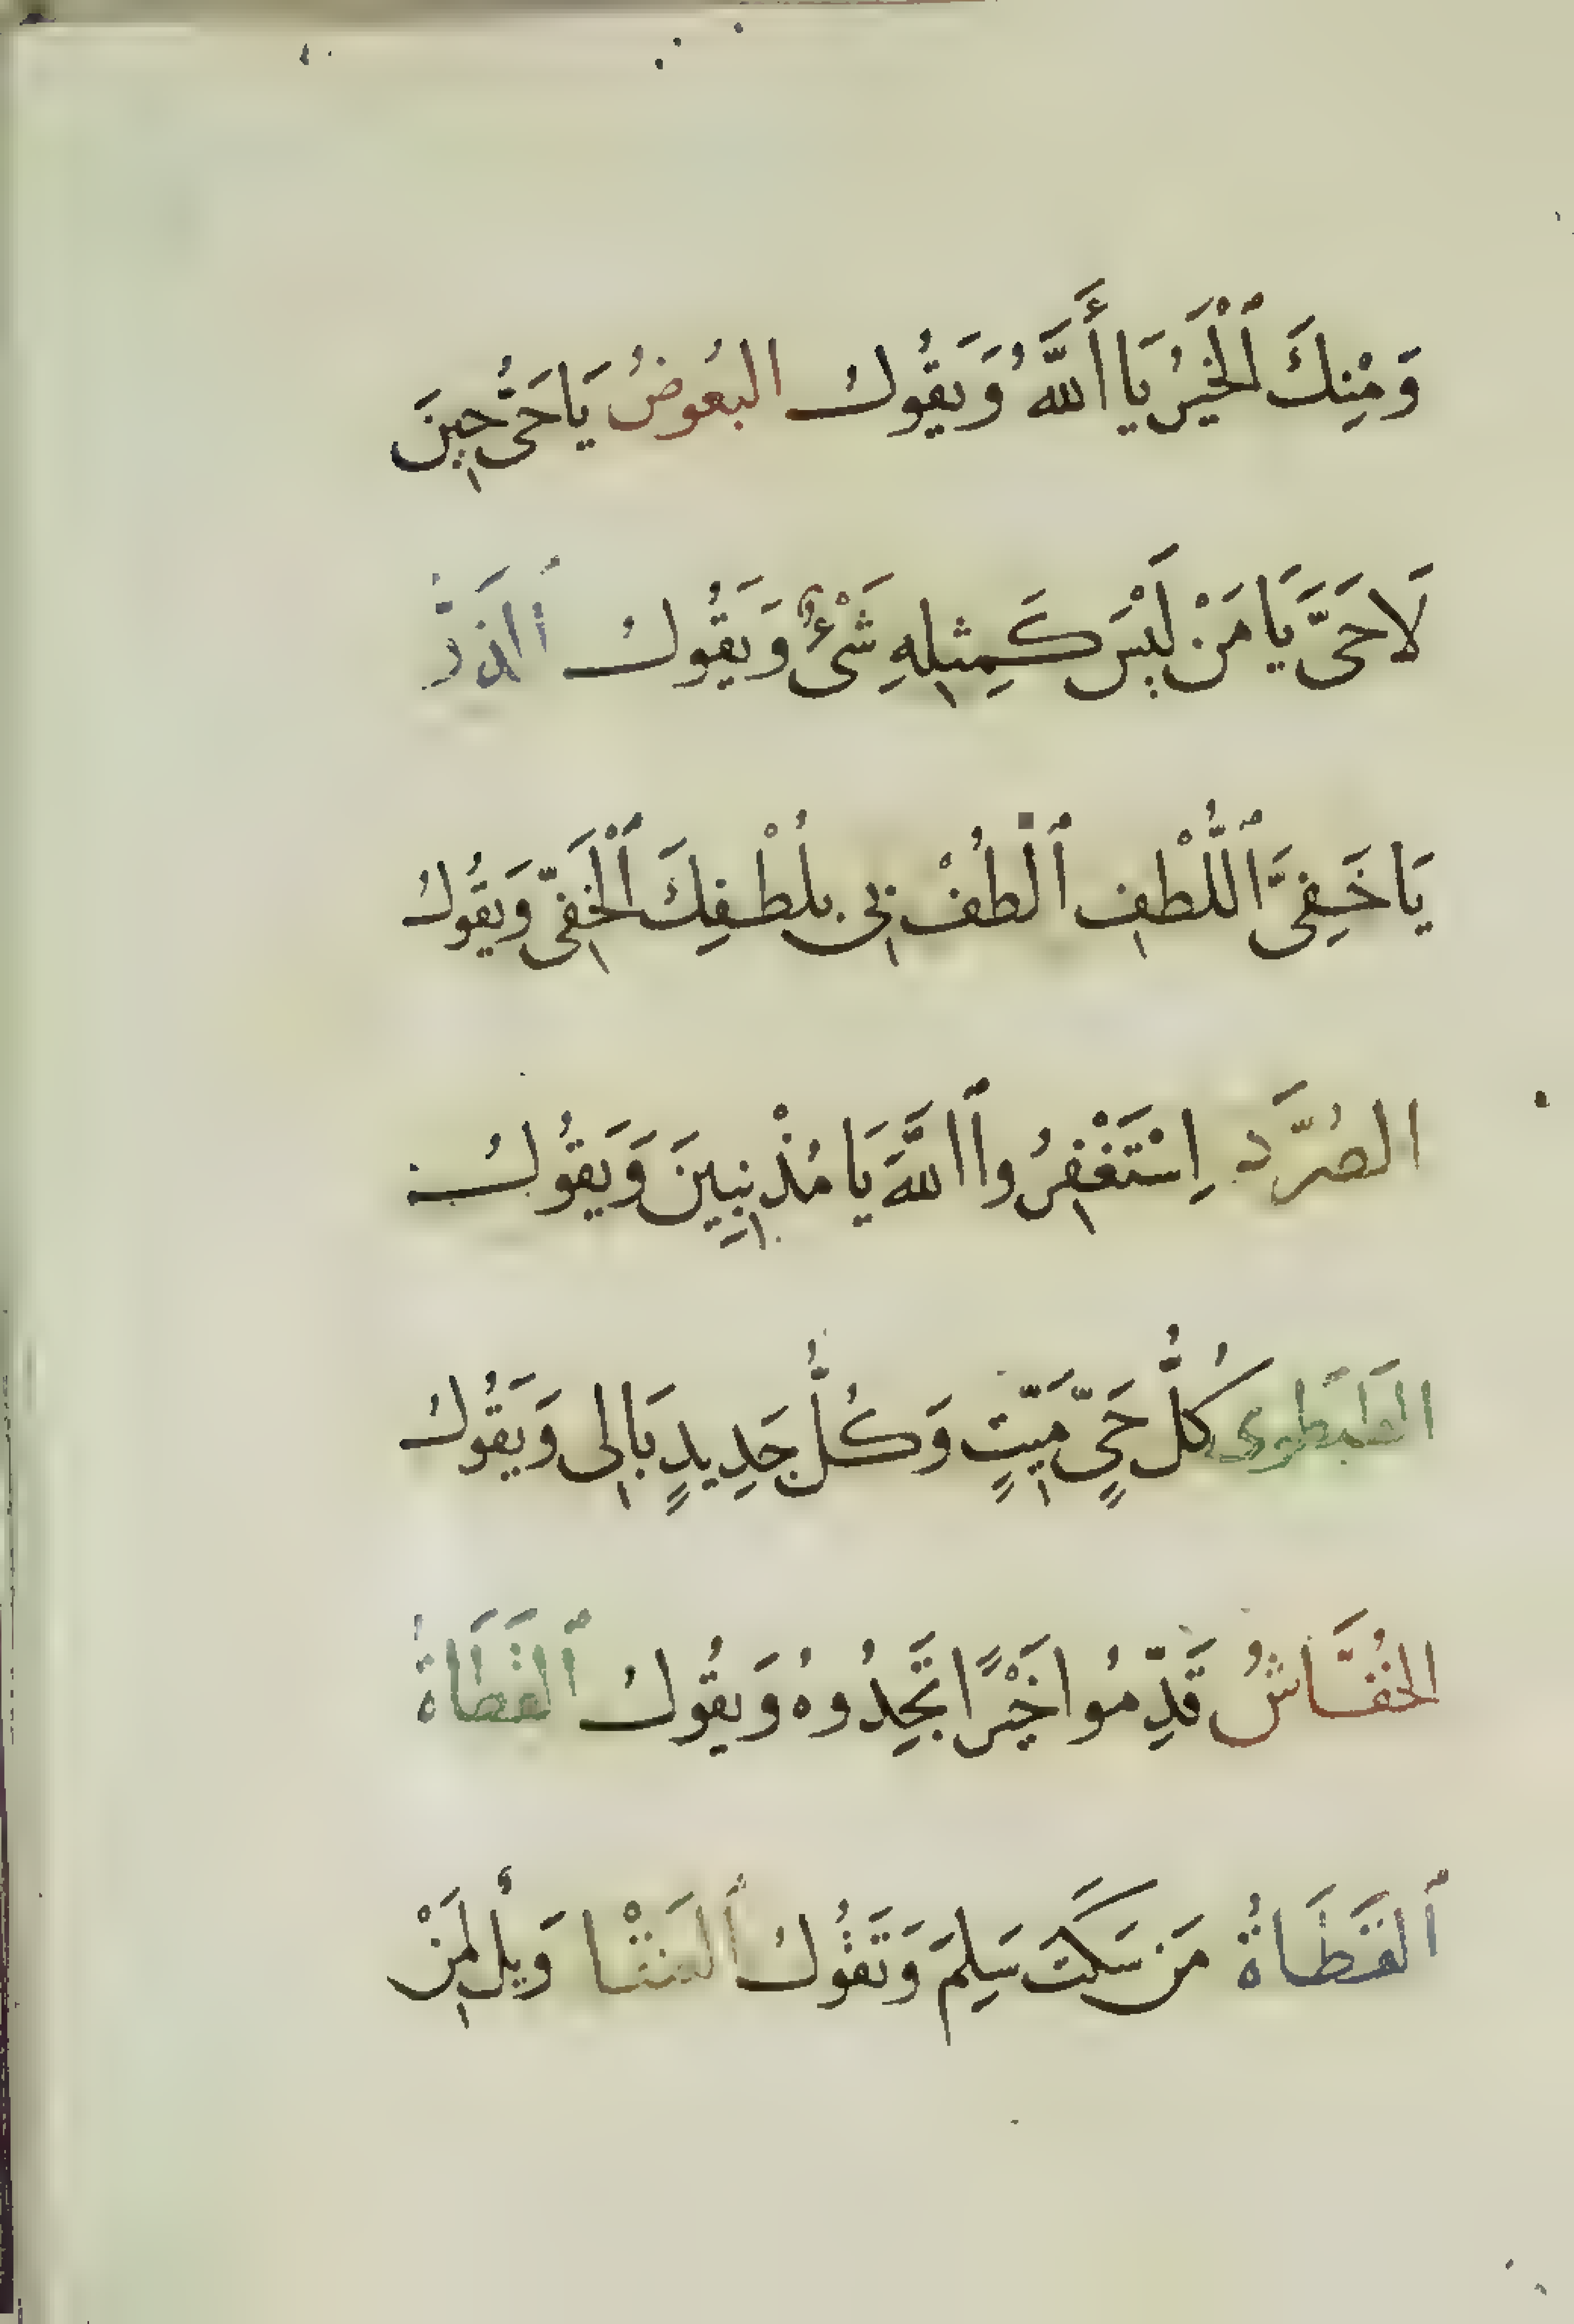 وَمِنْكَ ٱلْخَيْرُ يَا أَللَّهُ وَيَقُولُ البَعُوضُ يَا حَيُّ حِينَ
لَا حَيَّ يَا مَنْ لَيْسَ كَمِثْلِهِ شَيْءٌ وَيَقُولُ ٱلذَّرُّ
يَا خَفِيَّ ٱللُّطْفِ ٱلْطُفْ بِي بِلُطْفِكَ ٱلْخَفِيِّ وَيَقُولُ
الصُرَّد اِسْتَغْفِرُوا ٱللَّهَ يَا مُذْنِبِينَ وَيَقُولُ
الطَيطَوى كُلُّ حَيٍّ مَيِّتٍ وَكُلُّ جَدِيدٍ بَالِي وَيَقُولُ
الخُفَّاشُ قَدِّمُوا خَيْرًا تَجِدُوهُ وَيَقُولُ ٱلقَطَاةُ
ٱلقَطَاةُ مَن سَكَتَ سَلِمَ وَتَقُولُ ٱلعَنْقَا وَيْلٌ لِمَنْ